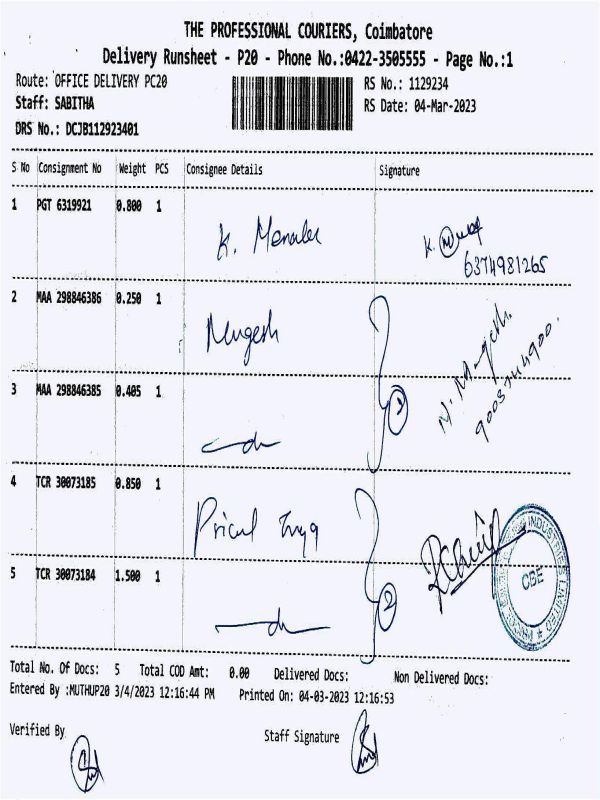 THE PROFESSIONAL COURIERS, Coimbatore
Delivery Runsheet - P20 - Phone No.:0422-3505555 - Page No.:1
Route: OFFICE DELIVERY PC20 RS No.: 1129234
Staff: SABITHA RS Date: 04-Mar-2023
DRS No.: DCJB112923401
S No Consignment No Weight PCS Consignee Details Signature
1 PGT 6319921 0.800 1
K.
K.
6374981265
2 MAA 298846386 0.250 1
Mugesh
3 MAA 298846385 0.405 1
1
4 TCR 30073185 0.850 1
CBE
5 TCR 30073184 1.500 1
2
Total No. Of Docs: 5 Total COD Amt: 0.00 Delivered Docs: Non Delivered Docs:
Entered By :MUTHUP20 3/4/2023 12:16:44 PM Printed On: 04-03-2023 12:16:53
Verified By Staff Signature